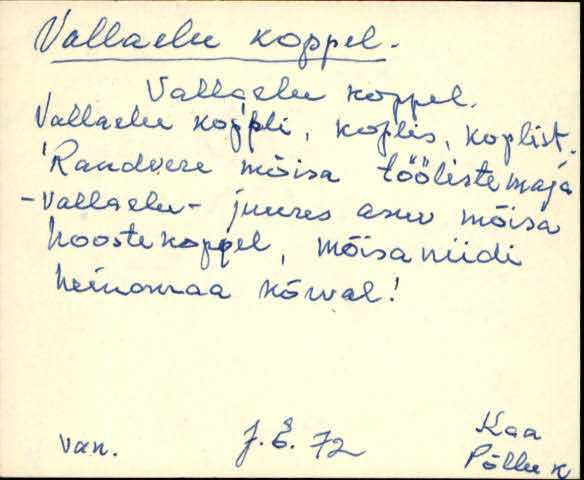 Vallaelu koppel.
Vallaelu koppel.
Vallaelu koppli, koplis, koplist.
Randvere mõisa tööliste maja
-Vallaelu- juures asuv mõisa
hooste koppel, mõisa niidi
heinamaa kõrval!
van. J. E. 72 Kaa
Põllu k